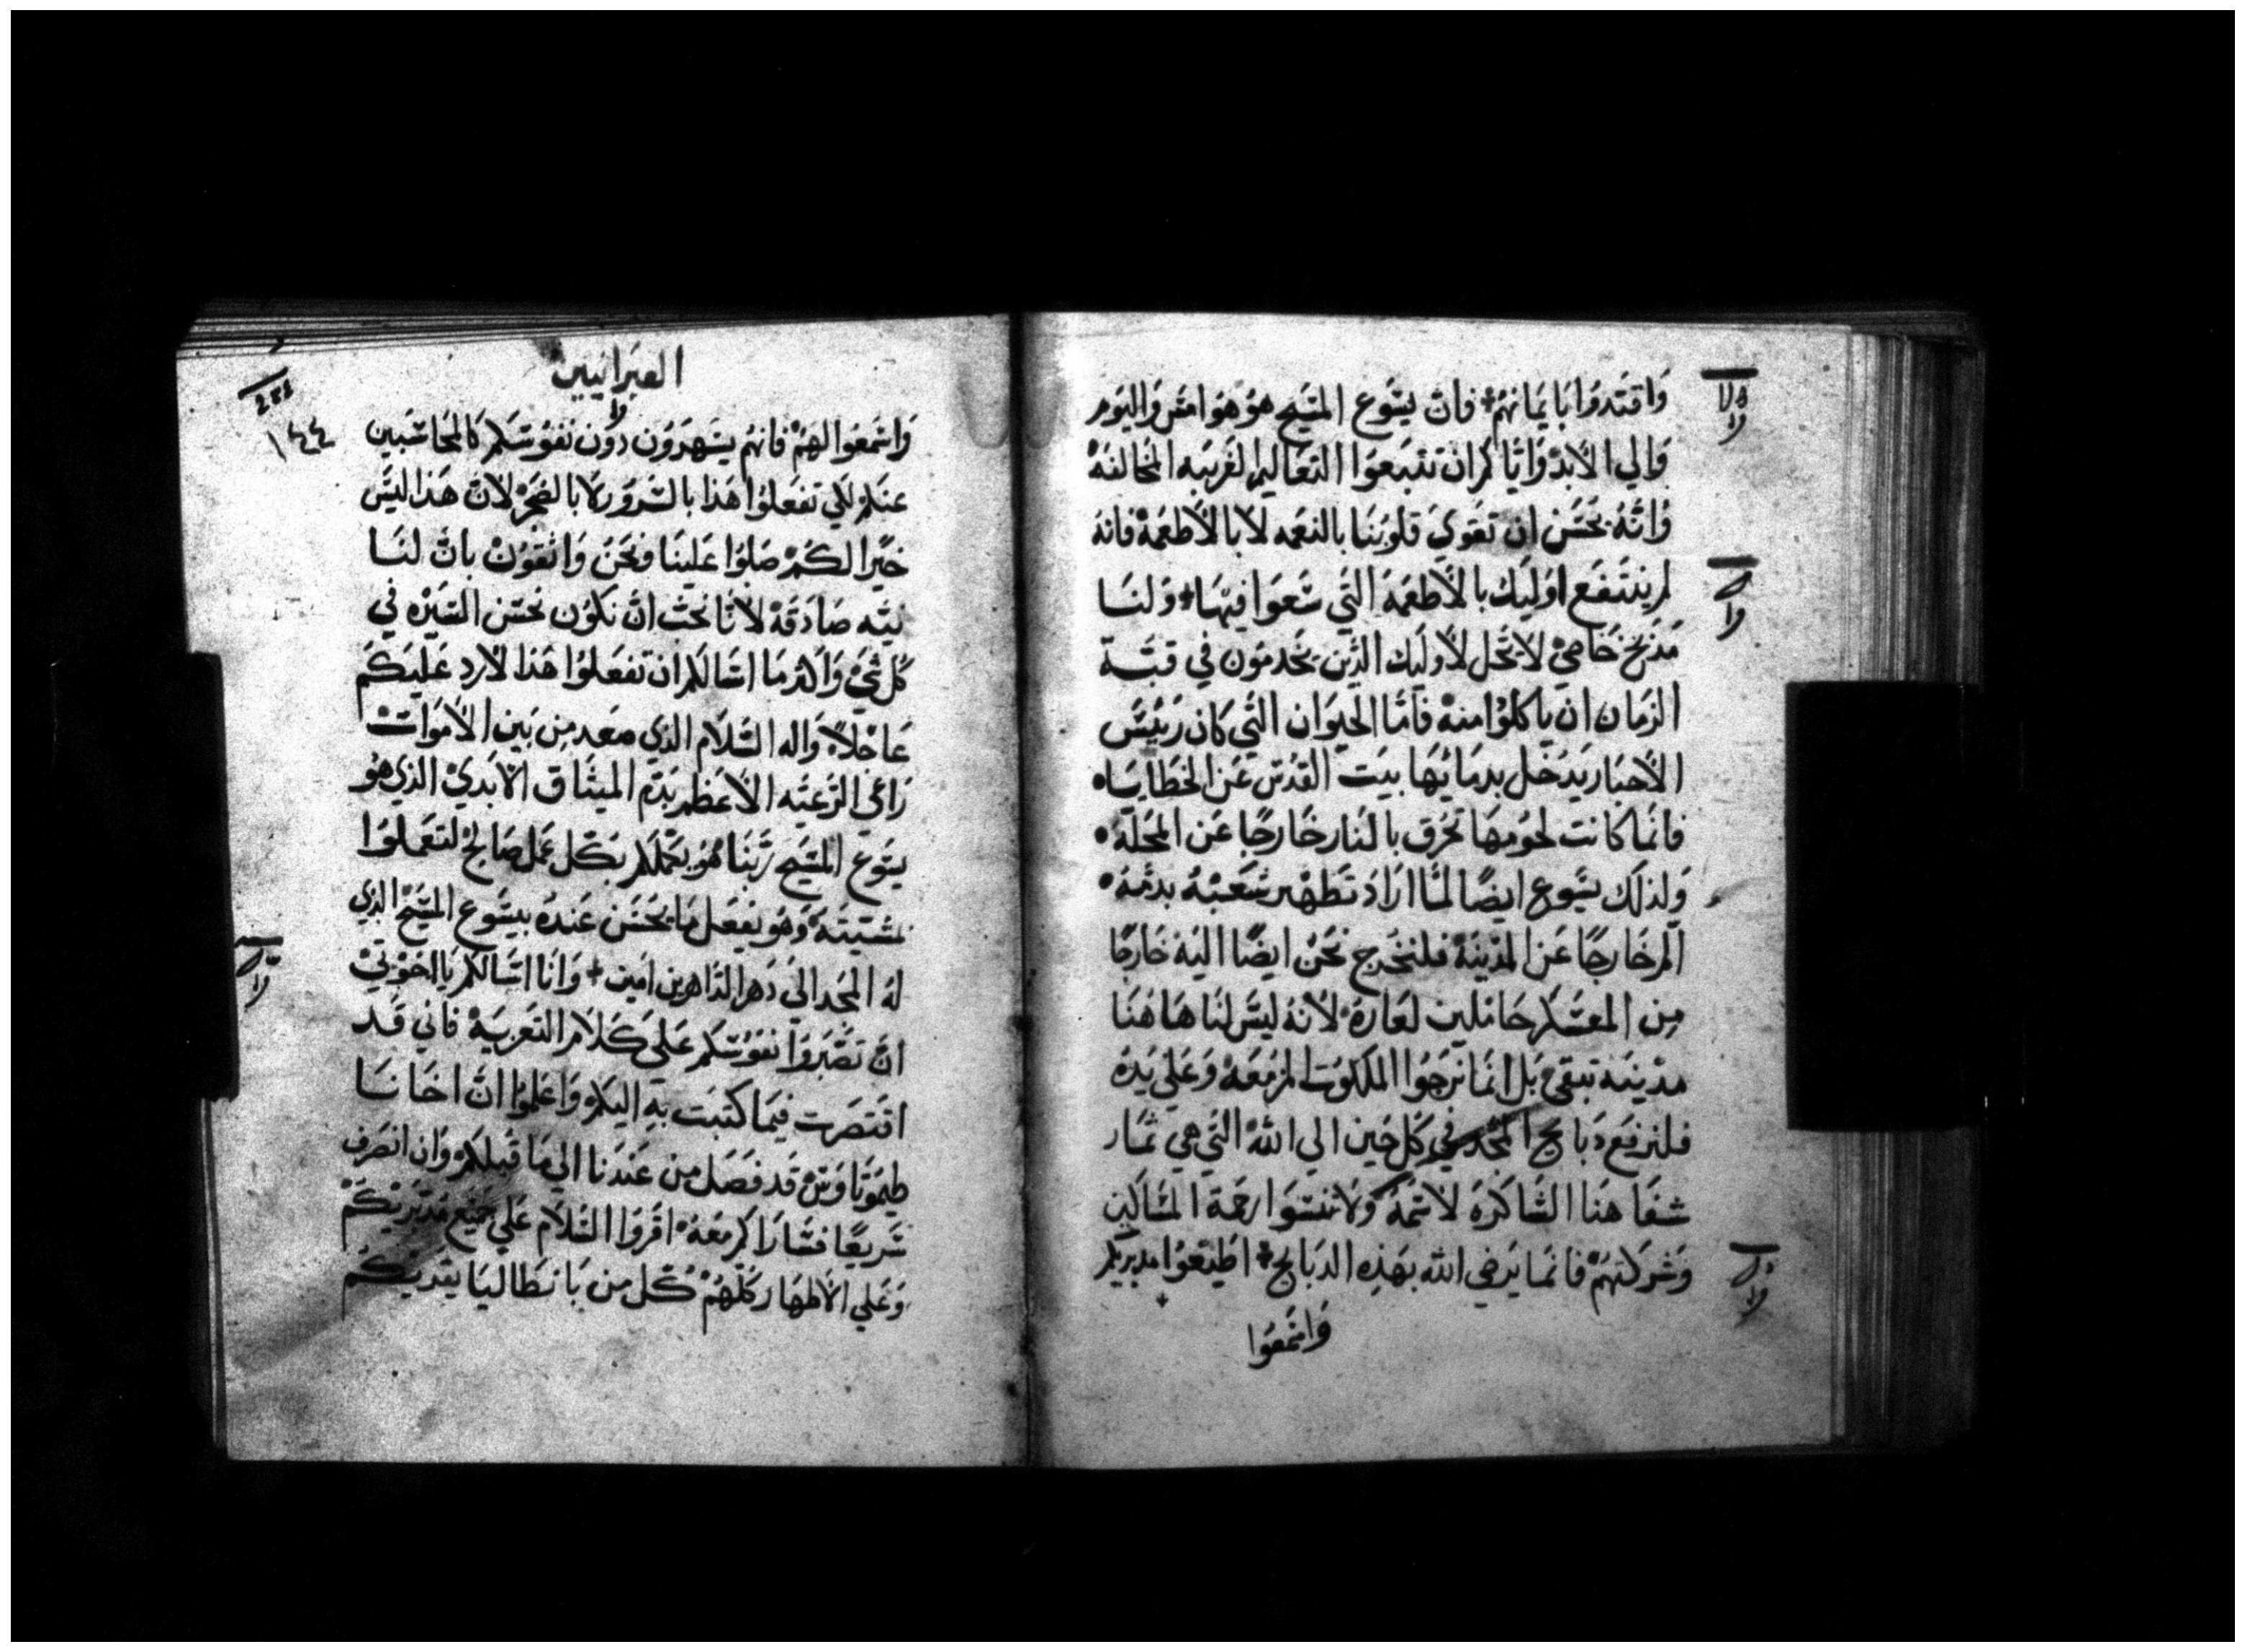 وَاقتَدوُا بَايمَانهُم؛ فَانّ يسَوع المسَيح هوُ هوُا امسَ وَاليَوم
وَالي الاَبدْ وَايَاكم انْ تتبَعوُا التعَاليم الغَريبَه المخَالفهْ
وَانهُ يحسَن ان تقَويَ قلوبنَا بالنعَمه لاَ بالاَطعَمهْ فانهُ
لم ينتفَع اوليَك بالاَطعَمهَ التَي سَعَوا فيهَا؛ وَلنَا
مَذبحَ خَاصيْ لاَ يحَل لاَوليَك الذَين يخَدموُن في قبَة
الزمَان ان يَاكلوُا منهْ فاَمَا الحيَوَان التَي كانَ رَئيسَ
الاَحبَار يَدخَل بدمَائهَا بيَت القدُس عَن الخطَايَا
فانَما كانت لحوُمهَا تحَرق بالنَار خَارجًا عَن المحَلة
وَلذلَك يسَوع ايضًا لمَا ارَادَ تطَهير شعَبهُ بدمَهُ
الَم خَارجًا عَن المدْينَهْ فلنخَرج نحَن ايضًا اليَه خَارجًا
مِن المعَسكَر حَاملين لعَارهُ لاَنهُ ليسَ لنَا هَا هنَا
مدْينَه تبقيَ بَل انمَا نرَجوُا الملكوُت المزمَعهْ وَعَلي يَدهُ
فلنرفعَ دبَايح المجَد في كَل حَين الي اللهْ التَي هيَ ثمَار
شفَاهنَا الشَاكرَه لاَسمَهُ وَلاَ تنسَوا رحمَة المسَاكين
وَشركَتهُمْ فانمَا يرَضي الله بهَذِه الدبَايح؛ اطَيعَوُا مدبرَيكم
وَاسَمعَوُا
العبَرانيَين
١٤٤
وَاسَمعَوُا لهُم فانهُم يسَهرَوُن دوُن نفوُسَكم كالمحَاسَبين
عنكَم لكي تفعَلوُا هَذا بالسَروَر لاَ بالضجَرْ لاَنْ هَذا ليسَ
خيَرًا لكُمْ صَلوُا عَلينَا وَنحَن وَاثقوُنْ بانْ لنَا
نيَه صَادقَهْ لاَنا نحَبْ انْ نكوُن نحَسن السَيرَه في
كَل شيَ وَاكثر مَا اسَالكم ان تفعَلوُا هَذا لاَرد عَليَكمَ
عَاجْلاً وَاله السَلاَم الذي صعَد مِن بيَن الاَموَات
رَاعَي الرَعيَه الاَعظم بدَم الميثَاق الاَبديْ الذي هوُ
يسَوع المسَيح ربَنا هوُ يكمَلكم بكَل عمَل صَالح لتعمَلوُا
مَشيَتهُ وَهوُ يفعَل مَا يحَسن عَندهُ بيسَوع المسَيح الذي
لهُ المجَد الَي دَهر الدَاهرين امَين؛ وَانَا اسَالكم يَا اخوَتيْ
انْ تصَبرَوا نفوُسَكم عَلى كَلاَم التعَزيَهْ فاني قَد
اقتصَرت فيمَا كتبَت بهِ اليَكم وَاعَلموُا انْ اخَانَا
طيمَوتاوَسْ قَد فصَل من عَندنا الي مَا قبلكم وَان انصَرف
سَريعًا فسَارَاكم معَهُ اقروَا السَلاَم عَلي جميَع مدبَريكَمْ
وَعَلي الاَطهَار كلهُمْ كَل من بَانطَاليَا يقرَيكَمُ